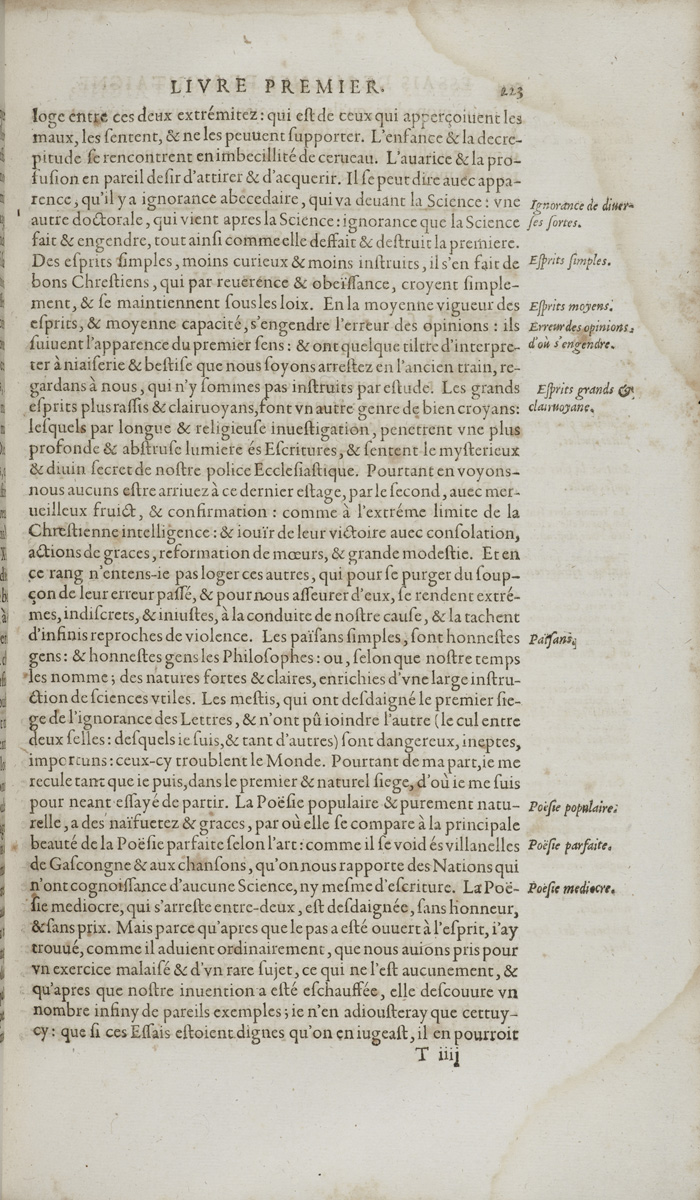 LIVRE PREMIER. 223
loge entre ces deux extrémitez: qui est de ceux qui apperçoiuent les
maux, les sentent, & ne les peuuent supporter. L'enfance & la decre-
pitude se rencontrent en imbecillité de cerueau. L'auarice & la pro-
fusion en pareil desir d'attirer & d'acquerir. Il se peut dire auec appa-
rence, qu'il y a ignorance abecedaire, qui va deuant la Science: vne
autre doctorale, qui vient apres la Science: ignorance que la Science
fait & engendre, tout ainsi comme elle deffait & destruit la premiere.
Des esprits simples, moins curieux & moins instruits, il s'en fait de
bons Chrestiens, qui par reuerence & obeïssance, croyent simple-
ment, & se maintiennent sous les loix. En la moyenne vigueur des
esprits, & moyenne capacité, s'engendre l'erreur des opinions: ils
suiuent l'apparence du premier sens: & ont quelque tiltre d'interpre-
ter à niaiserie & bestise que nous soyons arrestez en l'ancien train, re-
gardans à nous, qui n'y sommes pas instruits par estude. Les grands
esprits plus rassis & clairuoyans, font vn autre genre de bien croyans:
lesquels par longue & religieuse inuestigation, penetrent vne plus
profonde & abstruse lumiere és Escritures, & sentent le mysterieux
& diuin secret de nostre police Ecclesiastique. Pourtant en voyons-
nous aucuns estre arriuez à ce dernier estage, par le second, auec mer-
ueilleux fruict, & confirmation: comme à l'extréme limite de la
Chrestienne intelligence: & iouïr de leur victoire auec consolation,
actions de graces, reformation de mœurs, & grande modestie. Et en
ce rang n'entens-ie pas loger ces autres, qui pour se purger du soup-
çon de leur erreur passé, & pour nous asseurer d'eux, se rendent extré-
mes, indiscrets, & iniustes, à la conduite de nostre cause, & la tachent
d'infinis reproches de violence. Les païsans simples, sont honnestes
gens: & honnestes gens les Philosophes: ou, selon que nostre temps
les nomme; des natures fortes & claires, enrichies d'vne large instru-
ction de sciences vtiles. Les mestis, qui ont desdaigné le premier sie-
ge de l'ignorance des Lettres, & n'ont pû ioindre l'autre (le cul entre
deux selles: desquels ie suis, & tant d'autres) sont dangereux, ineptes,
importuns: ceux-cy troublent le Monde. Pourtant de ma part, ie me
recule tant que ie puis, dans le premier & naturel siege, d'où ie me suis
pour neant essayé de partir. La Poësie populaire & purement natu-
relle, a des naïfuetez & graces, par où elle se compare à la principale
beauté de la Poësie parfaite selon l'art: comme il se void és villanelles
de Gascongne & aux chansons, qu'on nous rapporte des Nations qui
n'ont cognoissance d'aucune Science, ny mesme d'escriture. La Poë-
sie mediocre, qui s'arreste entre-deux, est desdaignée, sans honneur,
& sans prix. Mais parce qu'apres que le pas a esté ouuert à l'esprit, i'ay
trouué, comme il aduient ordinairement, que nous auions pris pour
vn exercice malaisé & d'vn rare sujet, ce qui ne l'est aucunement, &
qu'apres que nostre inuention a esté eschauffée, elle descouure vn
nombre infiny de pareils exemples; ie n'en adiousteray que cettuy-
cy: que si ces Essais estoient dignes qu'on en iugeast, il en pourroit
T iiij
Ignorance de diuer-
ses sortes.
Esprits simples.
Esprits moyens.
Erreur des opinions,
d'où s'engendre.
Esprits grands &
clairuoyans.
Païsans.
Poësie populaire.
Poësie parfaite.
Poësie mediocre.